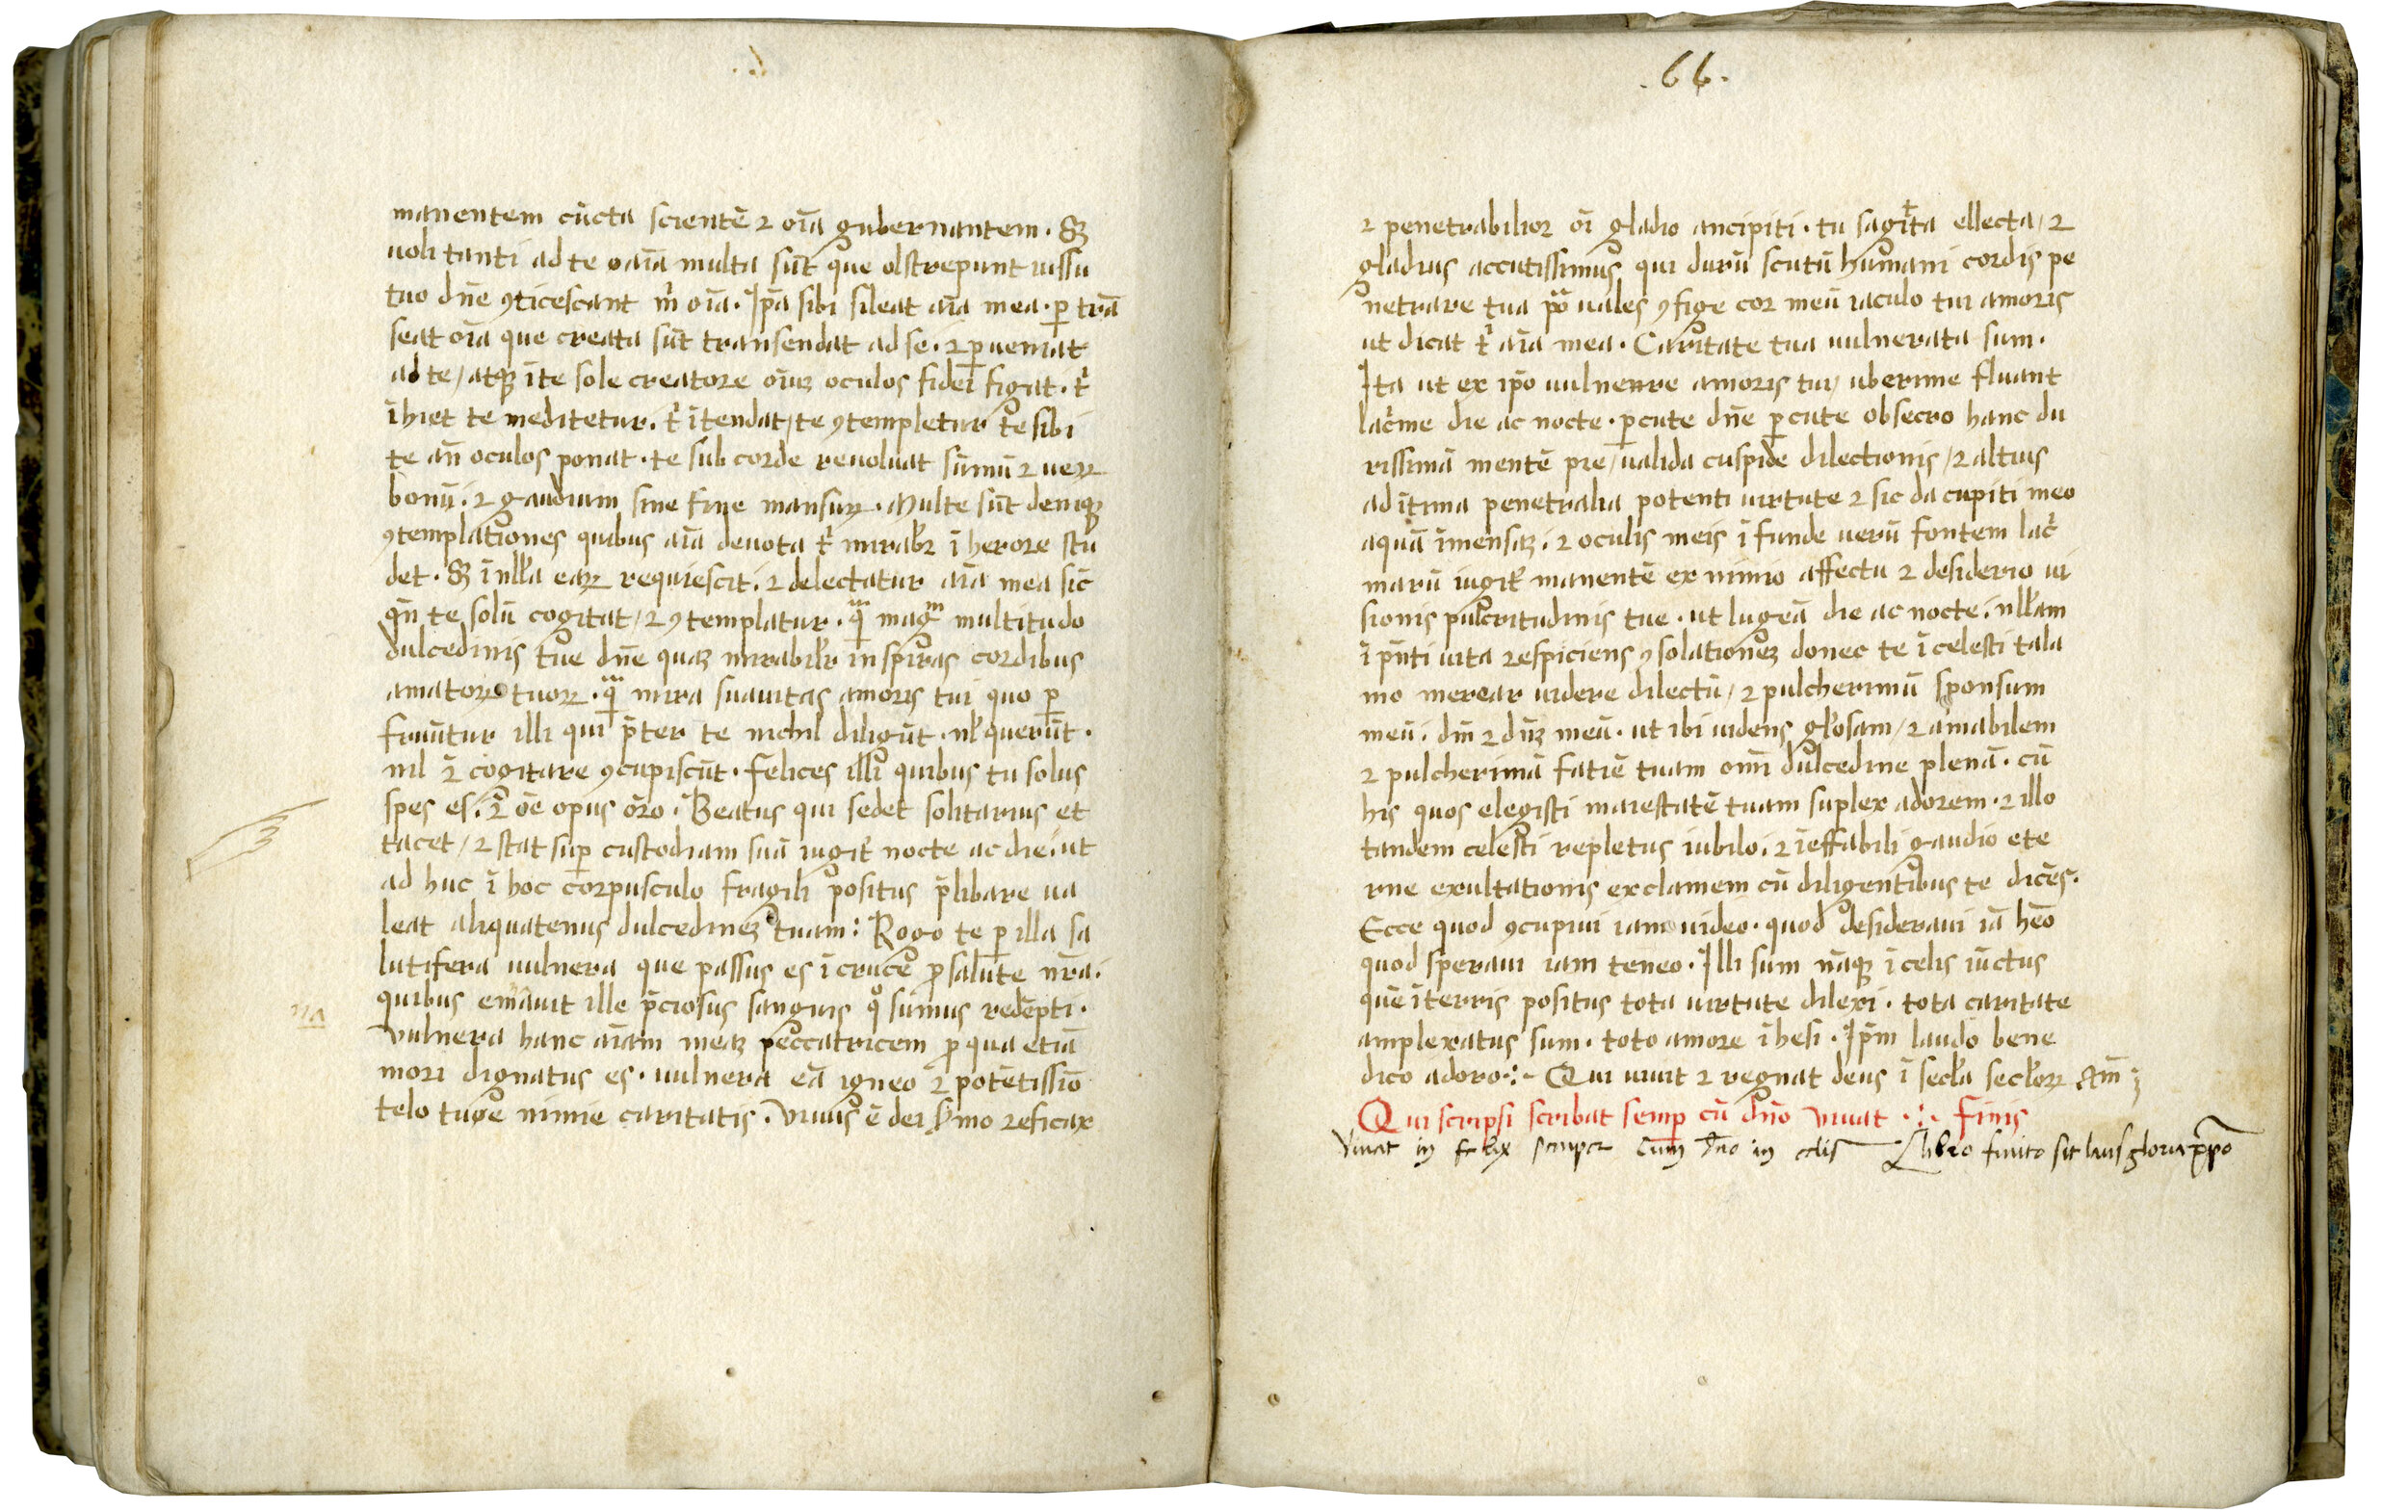 manentem cūcta scientē ⁊ oīa gubernantem. Sꝫ
uoli tanti ad te
multa sūt que obstrepunt iussu
tuo dn̄e ꝯticescant m̄ oīa. Ip̄a sibi sileat aīa mea. ꝑ trā
seat oīa que creata sūt transendat ad se. ⁊ ꝑueniat
ad te / atqꝫ ī te sole creatore oīuꝫ oculos fidei figat. t̄
īhiet te meditetur. t̄ ītendat / te ꝯtempletur te sibi
te an̄ oculos ponat. te sub corde reuoluat sūmū ⁊ ueꝝ
bonū. ⁊ gaudium sine fine mansuꝝ. Multe sūt deniqꝫ
ꝯtemplationes quibus aīa deuota t̄ mirabr̄ ī herore stu
det. Sꝫ ī nlła eaꝝ requiescit. ⁊ delectatur aīa mea sic̄
qn̄ te solū cogitat / ⁊ ꝯtemplatur. qᷓ magᷓ multitudo
dulcedinis tue dn̄e quaꝫ mirabilr̄ inspiras cordibus
amatoꝝ tuoꝝ. qᷓ mira suauitas amoris tui quo ꝑ
fruūtur illi qui p̄ter te nichil diligūt. nł querūt.
nil ē cogitare ꝯcupiscūt. felices illi quibus tu solus
spes es. ⁊ oē opus or̄o. Beatus qui sedet solitarius et
tacet / ⁊ stat suꝑ custodiam suā iugit̄ nocte ac die. ut
ad huc ī hoc corpusculo fragili positus p̄libare ua
leat aliquatenus dulcedineꝫ tuam: Rogo te ꝑ illa sa
lutifera uulnera que passus es ī cruce ꝓ salute nr̄a.
quibus emāuit ille p̄ciosus sanguis qͦ sumus redēpti.
Vulnera hanc aīam meaꝫ peccatricem ꝓ qua etiā
mori dignatus es. uulnera eā igneo ⁊ potētissīo
telo tuge nimie caritatis. Viuus ē dei s̄mo ⁊ eficax
.66.
⁊ penetrabilior oī gladio ancipiti. tu sagitta ellecta / ⁊
gladius accutissimus qui durū scutū humani cordis pe
netrare tua uales ꝯfige cor meū iaculo tui amoris
ut dicat t̄ aīa mea. Caritate tua uulnerata sum.
Ita ut ex ip̄o uulnenre amoris tui / uberime fluant
lac̄me die ac nocte. ꝑcute dn̄e ꝑcute obsecro hanc du
rissimā mentē pre / ualida cuspide dilectionis / ⁊ altius
ad ītima penetralia potenti uirtute ⁊ sic da cupiti meo
aquā īmensaꝫ. ⁊ oculis meis ī funde uerū fontem lac̄
marū iugit̄ manentē ex nimio affectu ⁊ desiderio ui
sionis pulcritudinis tue. ut lugeā die ac nocte. nłłam
ī pn̄ti uita respiciens ꝯsolationeꝫ donec te ī celesti tala
mo merear uidere dilectū / ⁊ pulcherimū sponsum
meū. dn̄ ⁊ dūꝫ meū. ut ibi uidens głosam / ⁊ amabilem
⁊ pulcherimā fatiē tuam omī dulcedine plenā. cū
his quos elegisti maiestatē tuam suplex adorem. ⁊ illo
tandem celesti repletus iubilo. ⁊ ieffabili gaudio ete
rne exultationis exclamem cū diligentibus te dicēs.
Ecce quod ꝯcupiui iam uideo. quod desideraui iā heō
quod speraui iam teneo. Illi sum nāqꝫ ī celis iūctus
quē īterris positus tota uirtute dilexi. tota caritate
amplexatus sum. toto amore īhesi. Ip̄m laudo bene
dico adoro:~ Qui uiuit ⁊ regnat deus ī secła secłoꝝ Am̄
Qui scripsi scribat semꝑ cū dn̄o uiuat .:. Finis
Viuat in felix semper cum dn̄o in celis Libro finito sit laus gloria
na